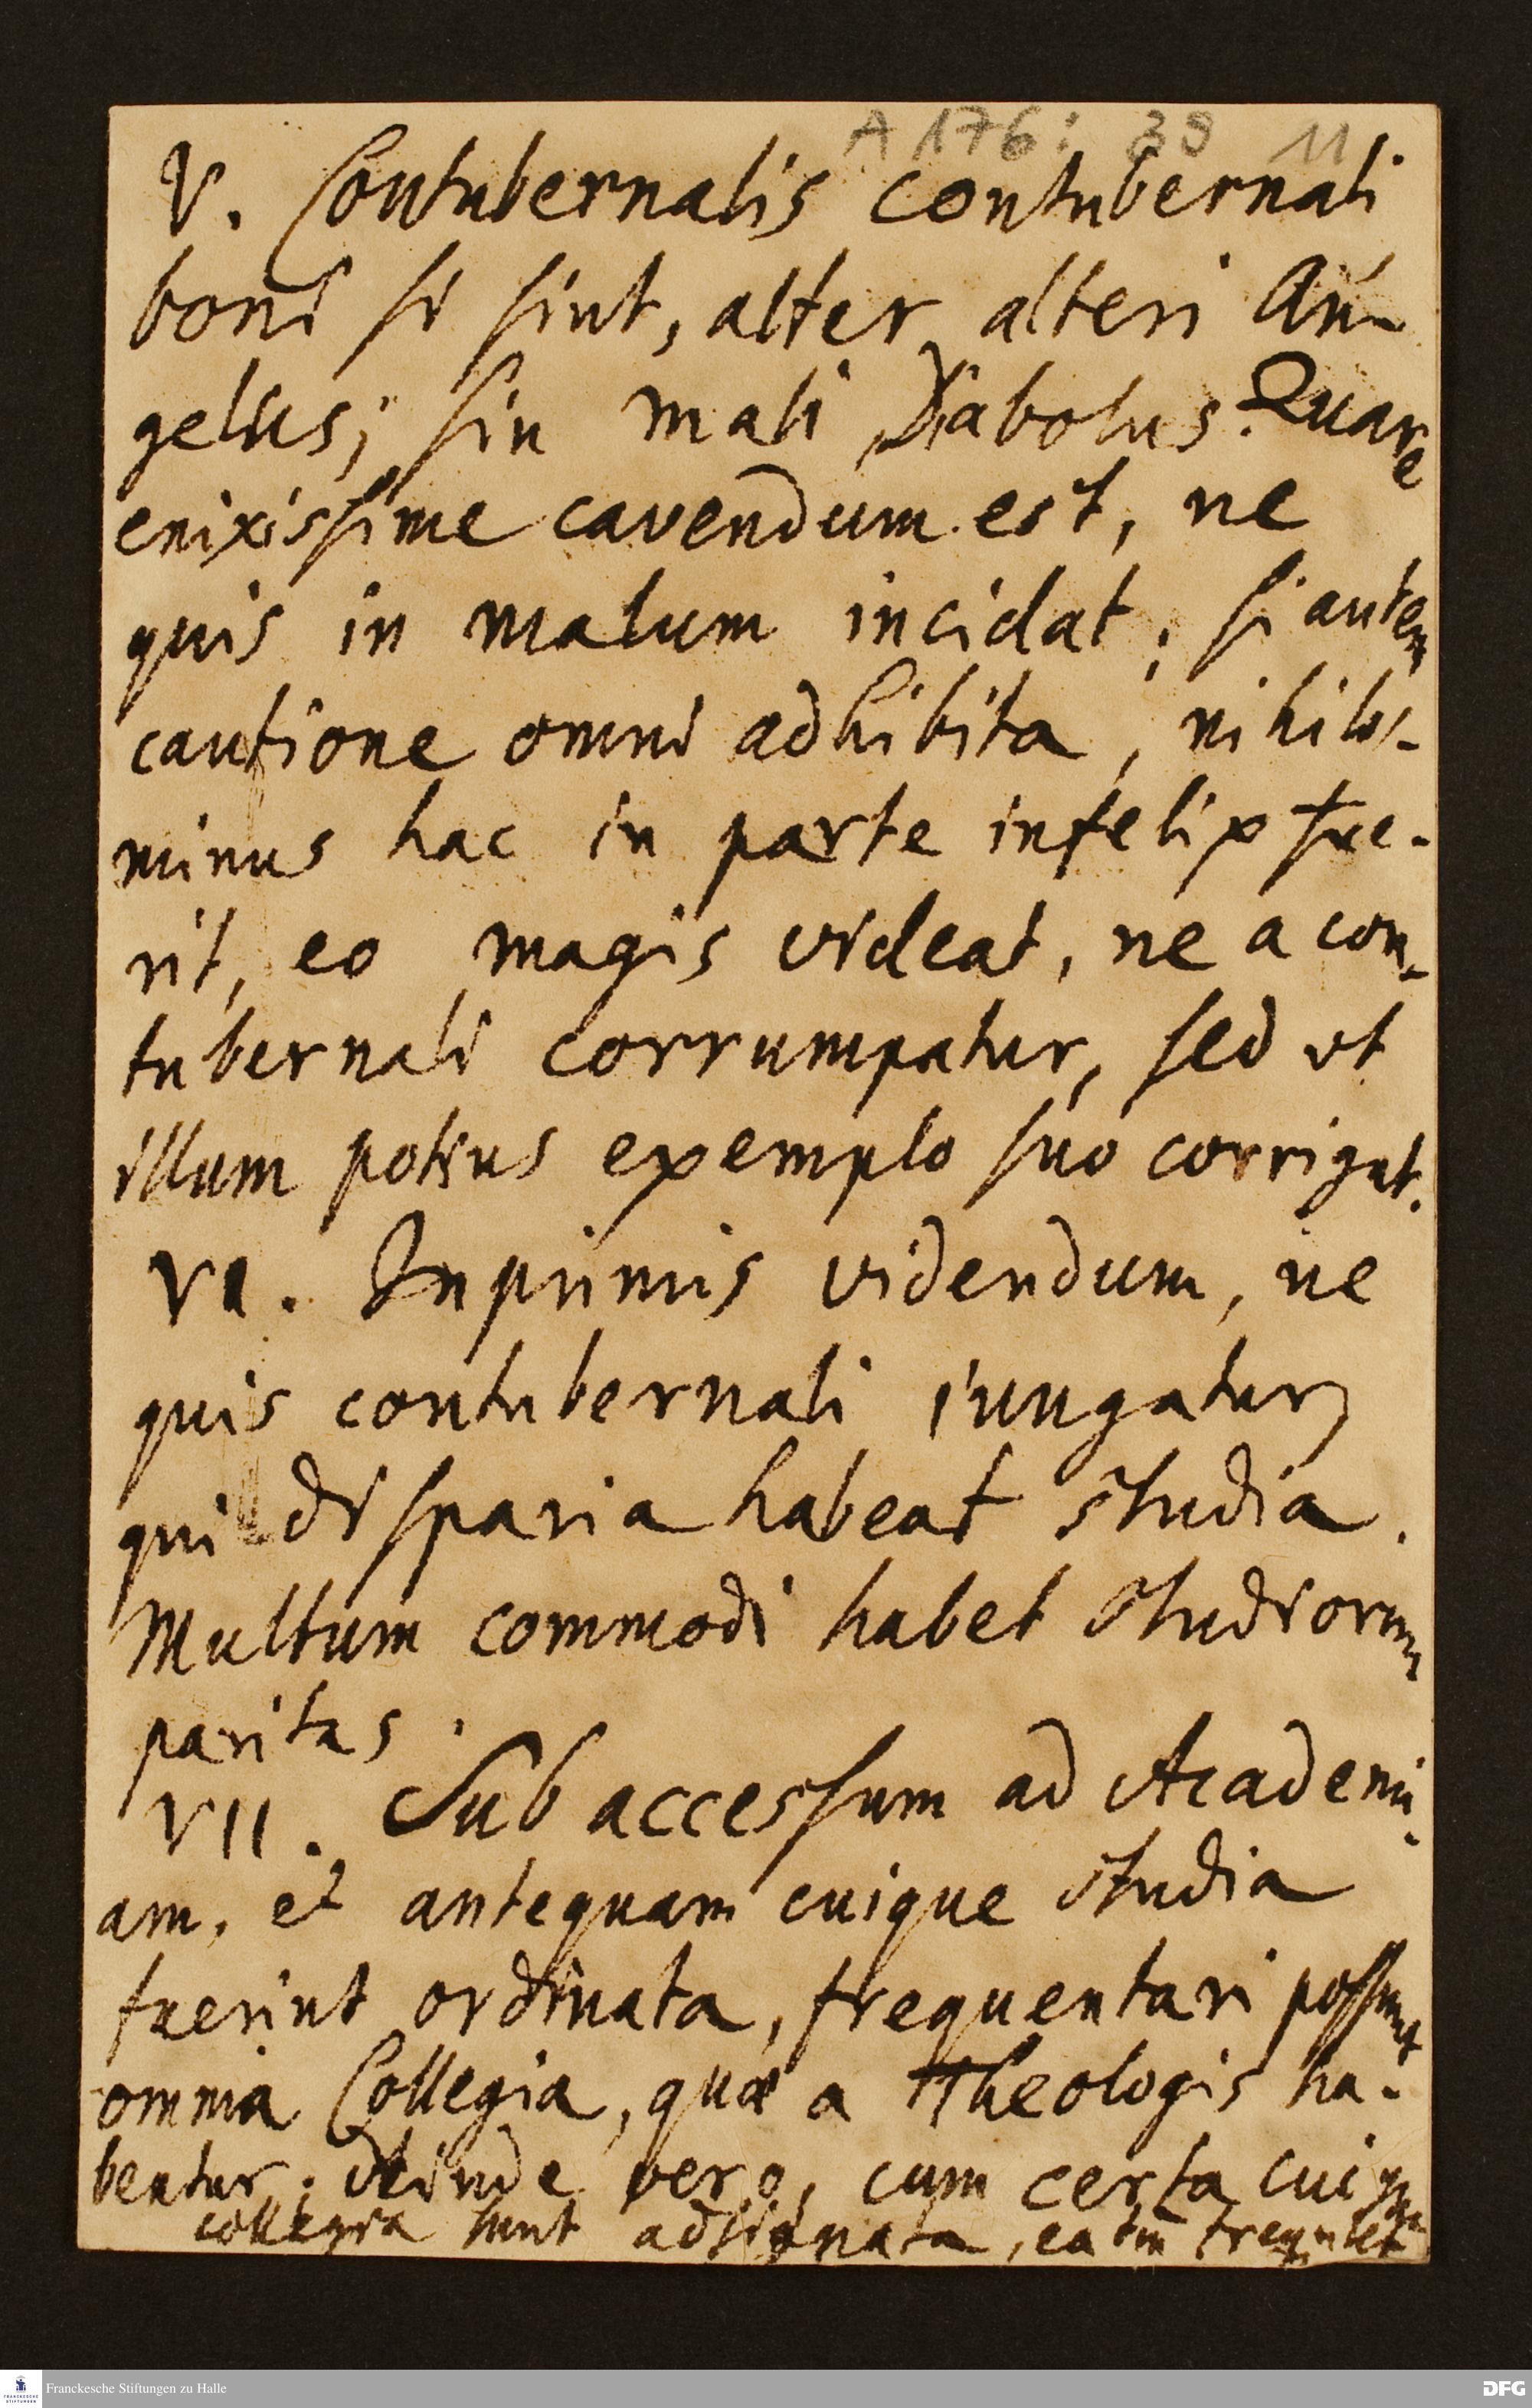 A 176 : 39 11
V. Contubernalis contubernali
boni si sint, alter alteri An-
gelus; sin mali Diabolus. Quare
enixissime cavendum est, ne
quis in malum incidat; si autem
cautione omni adhibita, nihilo-
minus hac in parte infelix fue-
rit, eo magis videat, ne a con-
tubernali corrumpatur, sed ut
illum potius exemplo suo corrigat.
VI. Inprimis videndum, ne
quis contubernali iungatur,
qui disparia habeat studia.
Multum commodi habet studiorum
paritas.
VII. Sub accessum ad Academi-
am, et antequam cuique studia
fuerint ordinata, frequentari possunt
omnia Collegia, quæ a Theologis ha-
bentur; deinde vero, cum certa cuique
collegia sunt adsignata, ea tm̄ frequentet
Franckesche Stiftungen zu Halle
DFG